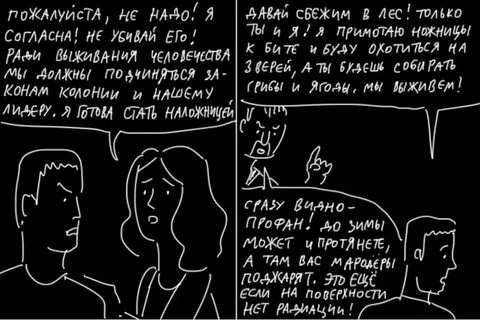 ПОЖАЛУЙСТА, НЕ НАДО! Я
СОГЛАСНА! НЕ УБИВАЙ ЕГО!
РАДИ ВЫЖИВАНИЯ ЧЕЛОВЕЧЕСТВА
МЫ ДОЛЖНЫ ПОДЧИНЯТЬСЯ ЗА-
КОНАМ КОЛОНИИ И НАШЕМУ
ЛИДЕРУ. Я ГОТОВА СТАТЬ НАЛОЖНИЦЕЙ
ДАВАЙ СБЕЖИМ В ЛЕС! ТОЛЬКО
ТЫ И Я! Я ПРИМОТАЮ НОЖНИЦЫ
К БИТЕ И БУДУ ОХОТИТЬСЯ НА
ЗВЕРЕЙ, А ТЫ БУДЕШЬ СОБИРАТЬ
ГРИБЫ И ЯГОДЫ, МЫ ВЫЖИВЕМ!
СРАЗУ ВИДНО-
ПРОФАН! ДО ЗИМЫ
МОЖЕТ И ПРОТЯНЕТЕ,
А ТАМ ВАС МАРОДЁРЫ
ПОДЖАРЯТ. ЭТО ЕЩЁ
ЕСЛИ НА ПОВЕРХНОСТИ
НЕТ РАДИАЦИИ!